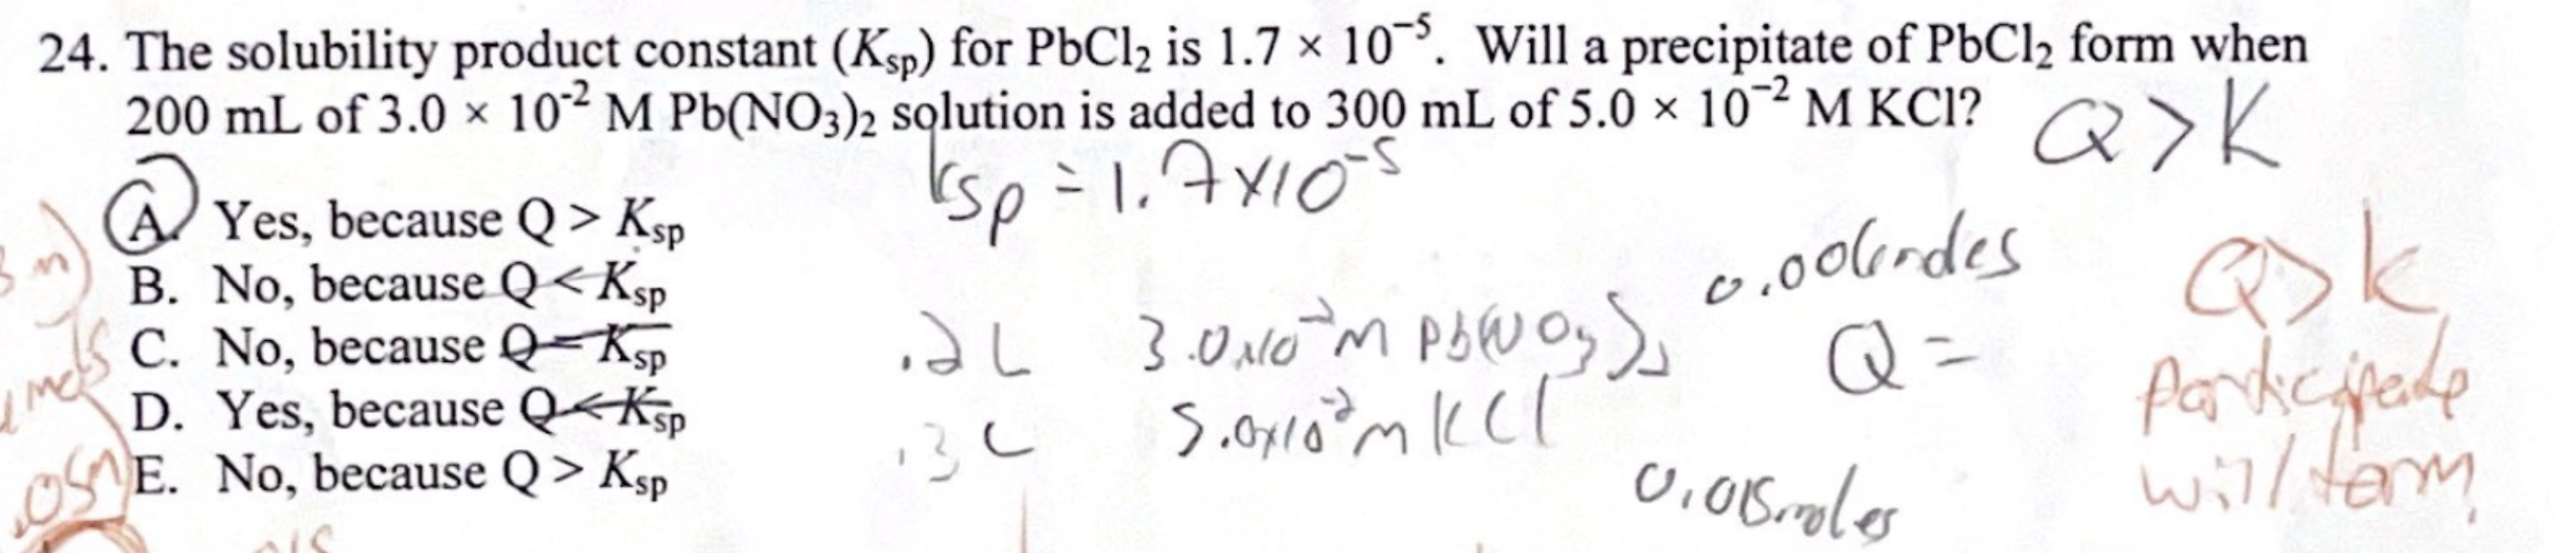 24. The solubility product constant (Ksp) for PbCl₂ is 1.7 × 10⁻⁵. Will a precipitate of PbCl₂ form when
200 mL of 3.0 × 10⁻² M Pb(NO₃)₂ solution is added to 300 mL of 5.0 × 10⁻² M KCl?
Q > K
Ksp = 1.7x10⁻⁵
A. Yes, because Q > Ksp
B. No, because Q < Ksp
C. No, because Q = Ksp
D. Yes, because Q < Ksp
E. No, because Q > Ksp
0.006moles
.2 L 3.0x10⁻²M Pb(NO₃)₂
Q =
.3 L 5.0x10⁻²M KCl
0.015moles
Q > k
will form